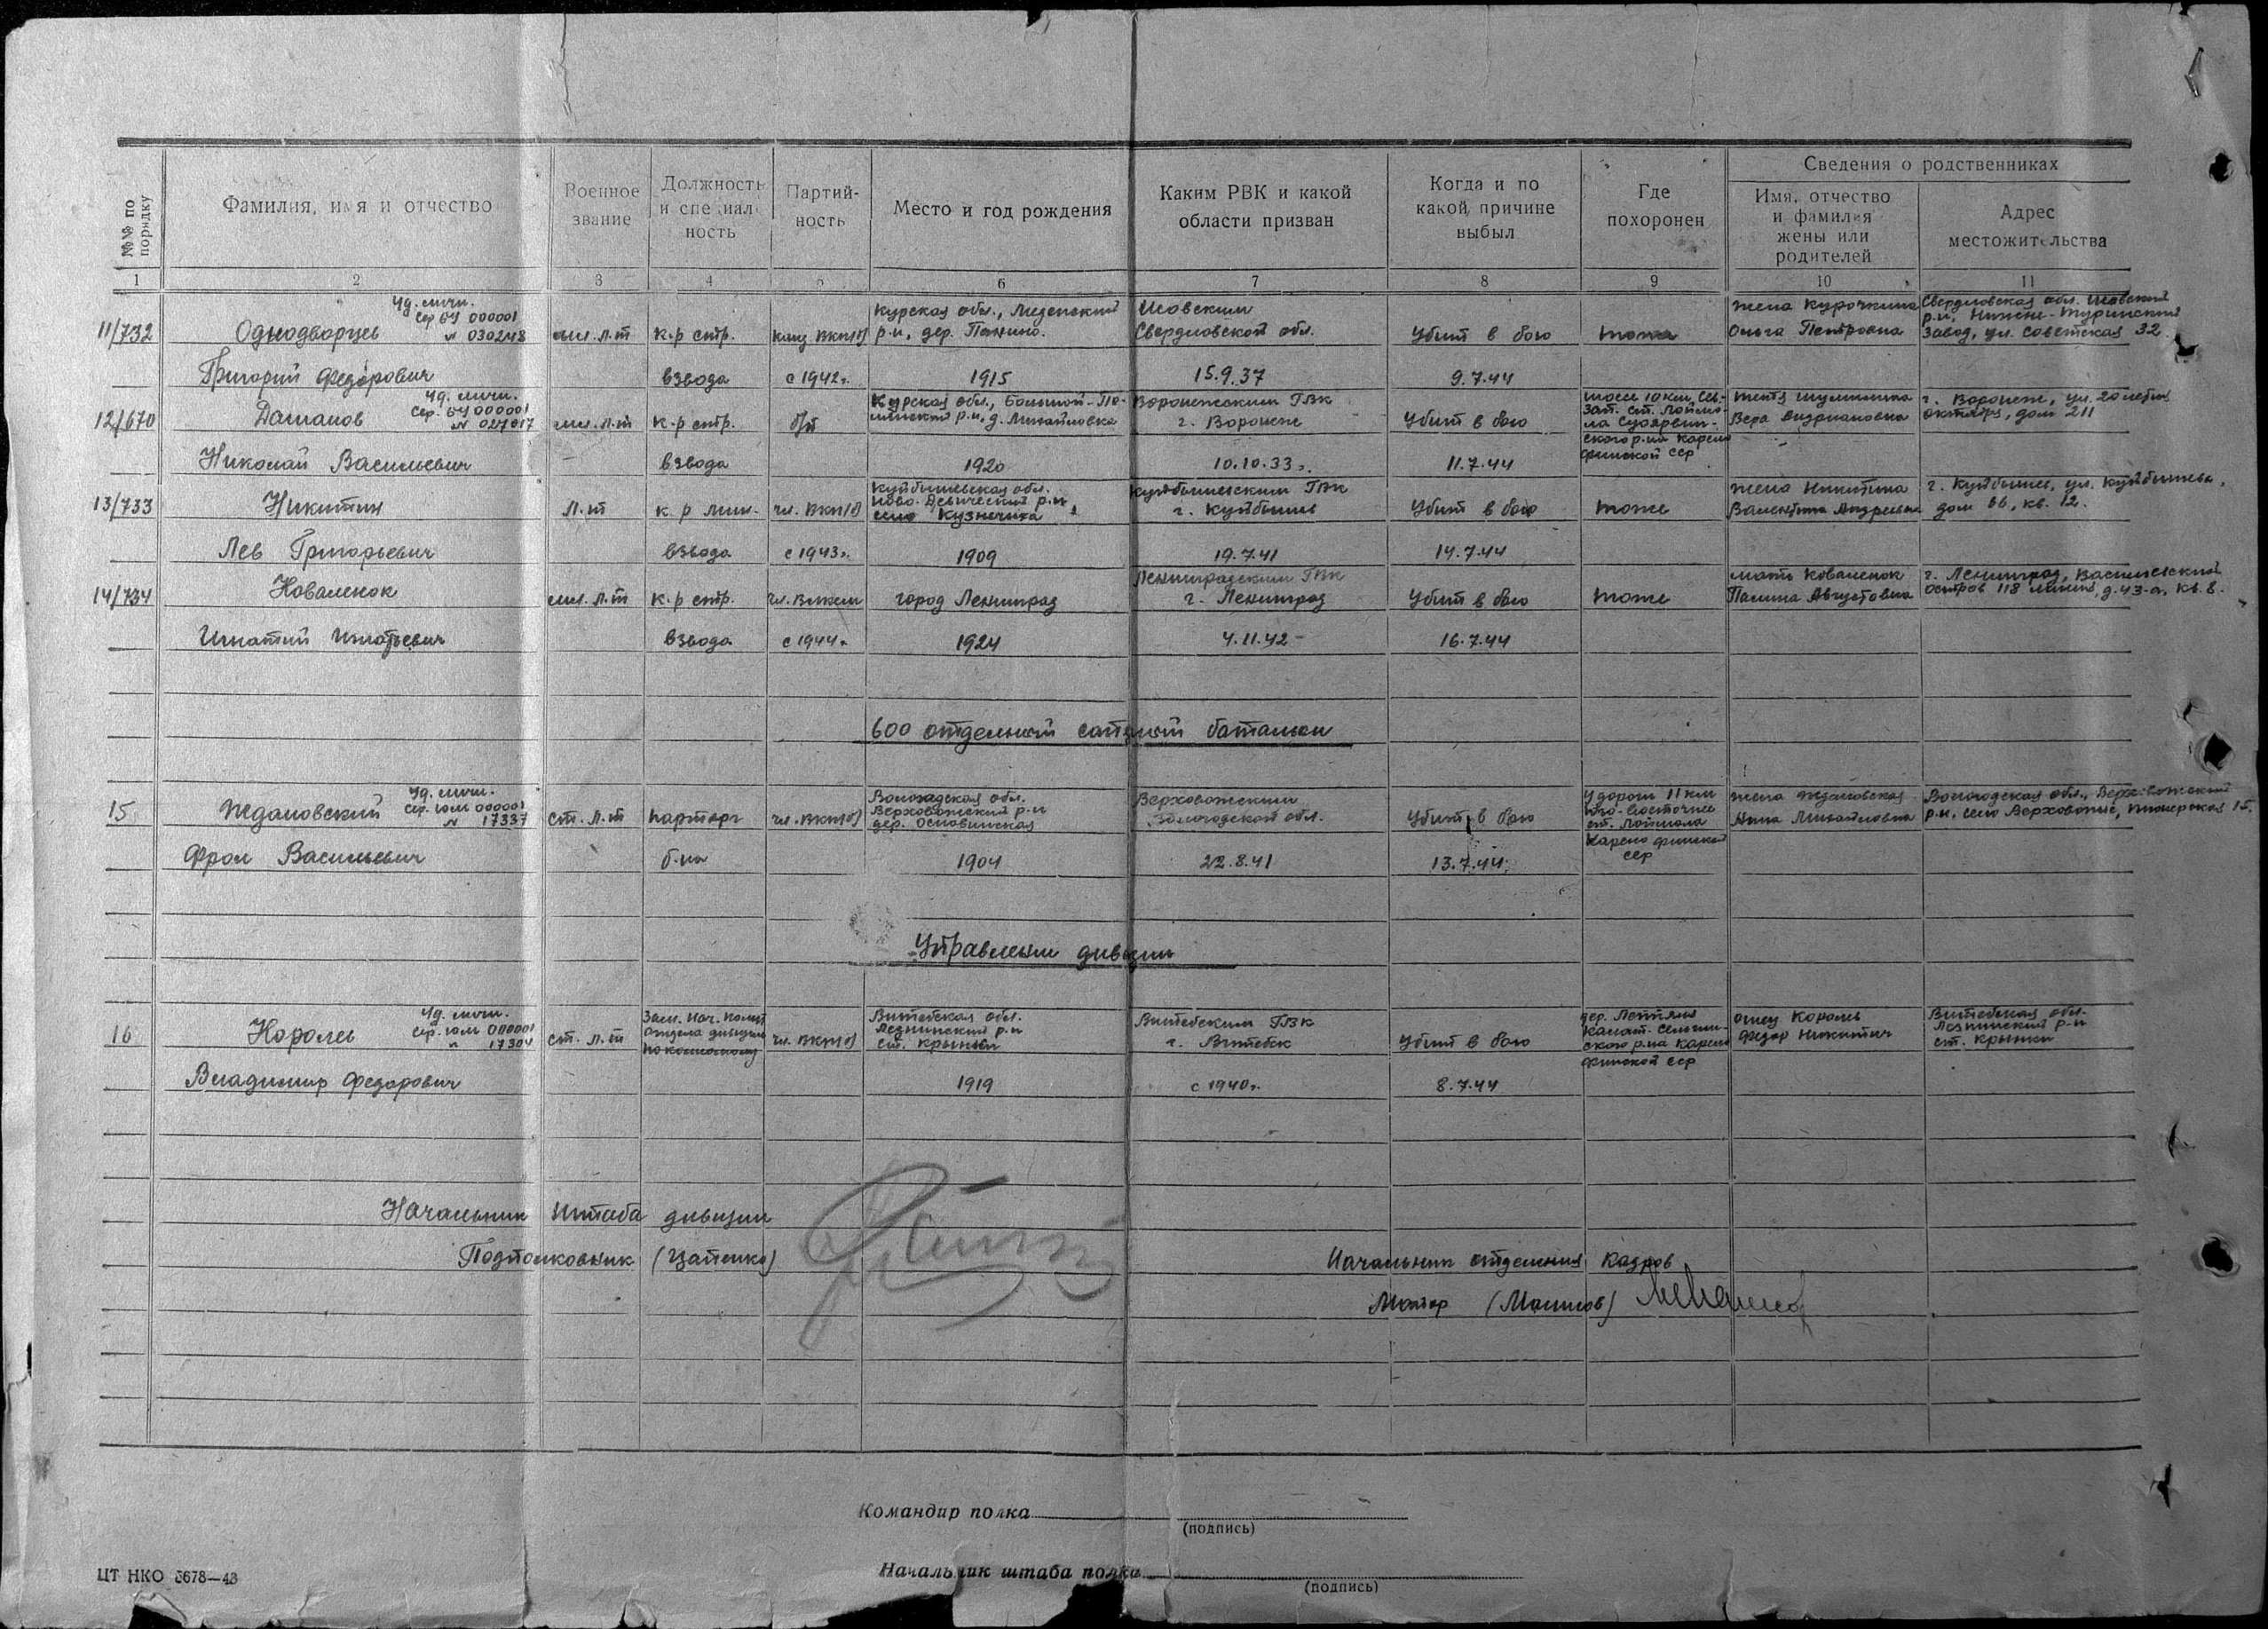 №№ по порядку
Фамилия, имя и отчество
Военное звание
Должность и специальность
Партийность
Место и год рождения
Каким РВК и какой области призван
Когда и по какой причине выбыл
Где похоронен
Сведения о родственниках
Имя, отчество и фамилия жены или родителей
Адрес местожительства
1 2 3 4 5 6 7 8 9 10 11
Уд. личн.
Сер БУ 000001
11/732 Однодворцев № 030248 мл. л-т к-р стр. канд ВКП(б) Курская обл., р-н, дер. Панино. Исовским Свердловской обл. Убит в бою тоже жена Курочкина Ольга Петровна Свердловская обл. Исовский р-н, Нижне-Туринский завод, ул. Советская 32
Григорий Федорович взвода с 1942г. 1915 15.9.37 9.7.44
Уд. личн.
Сер. БУ 000001
12/670 мл. л-т к-р стр. б/п Курская обл., р-н, д. Михайловка Воронежским ГВК г. Воронеж Убит в бою шоссе 10 км, сев.-зап. ст. Лоймола Суоярвинского р-на Карело финской сср Вера Андриановна г. Воронеж, ул. 20 летия октября, дом 211
Николай Васильевич взвода 1920 10.10.33г. 11.7.44
13/733 Никитин л-т к-р мин. чл. ВКП(б) Куйбышевская обл. Ново-Девиченский р-н село Кузнечиха Куйбышевским ГВК г. Куйбышев Убит в бою тоже жена Никитина Валентина Андреевна г. Куйбышев, ул. Куйбышева, дом 66, кв. 12.
Лев Григорьевич взвода с 1943г. 1909 19.7.41 14.7.44
14/734 Коваленок мл. л-т к-р стр. чл. Влксм город Ленинград Ленинградским ГВК г. Ленинград Убит в бою тоже мать Коваленок Августовна г. Ленинград, Васильевский остров линия, д. 43-а, кв. 8.
Игнатий Игнатьевич взвода с 1944г. 1924 4.11.42 16.7.44
600 отдельный саперный батальон
Уд. личн.
Сер. ЮМ 000001
15 Ждановский № 17337 ст. л-т парторг чл. ВКП(б) Вологодская обл. Верховажский р-н дер. Верховажским Вологодской обл. Убит в бою У дороги 11 км юго-восточнее ст. Лоймола Карело финской сср жена Ждановская Анна Михайловна Вологодская обл., Верховажский р-н, село Верховажье, пионерская 15.
Фрол Васильевич б-на 1904 22.8.41 13.7.44
Управление дивизии
Уд. личн.
Сер. ЮМ 000001
16 Королев № 17304 ст. л-т Зам. нач. полит отдела дивизии по комсомолу чл. ВКП(б) Витебская обл. Лезнинский р-н ст. Крынки Витебским ГВК г. Витебск Убит в бою дер. р-на Карело финской сср отец Королев Федор Никитич Витебская обл. Лезнинский р-н ст. Крынки
Владимир Федорович 1919 с 1940г. 8.7.44
Начальник штаба дивизии
Подполковник (Цапенко)
Начальник отделения кадров
Майор
Командир полка
(подпись)
Начальник штаба полка
(подпись)
ЦТ НКО 5678—43